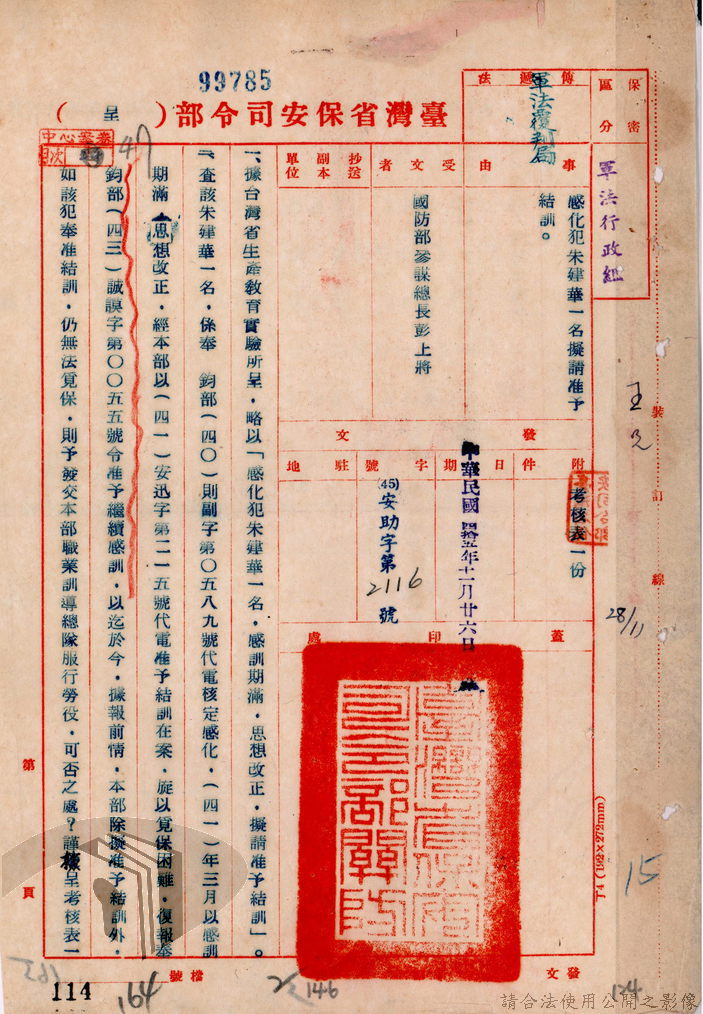 99785
臺灣省保安司令部（呈）
保密
區分
軍法行政組
傳遞法
軍法覆判局
事由
感化犯朱建華一名擬請准予
結訓。
受文者
國防部參謀總長彭上將
抄送
副本
單位
發文
附件
考核表一份
日期
中華民國四拾五年十一月廿六日
字號
(45)安助字第2116號
駐地
蓋印處
一、據台灣省生產教育實驗所呈，略以「感化犯朱建華一名，感訓期滿，思想改正，擬請准予結訓」。
二、查該朱建華一名，係奉　鈞部（四〇）則副字第〇五八九號代電核定感化，（四一）年三月以感訓
期滿　思想改正，經本部以（四一）安迅字第二一五號代電准予結訓在案，旋以覓保困難，復報奉
鈞部（四三）誠謨字第〇〇五五號令准予繼續感訓，以迄於今，據報前情，本部除擬准予結訓外，
如該犯奉准結訓，仍無法覓保，則予發交本部職業訓導總隊服行勞役，可否之處？謹檢呈考核表一
裝訂線
28/11
15
丁4 (192×272mm)
第頁
檔號
發文
114
164
146
124
臺灣省保安司令部關防
請合法使用公開之影像